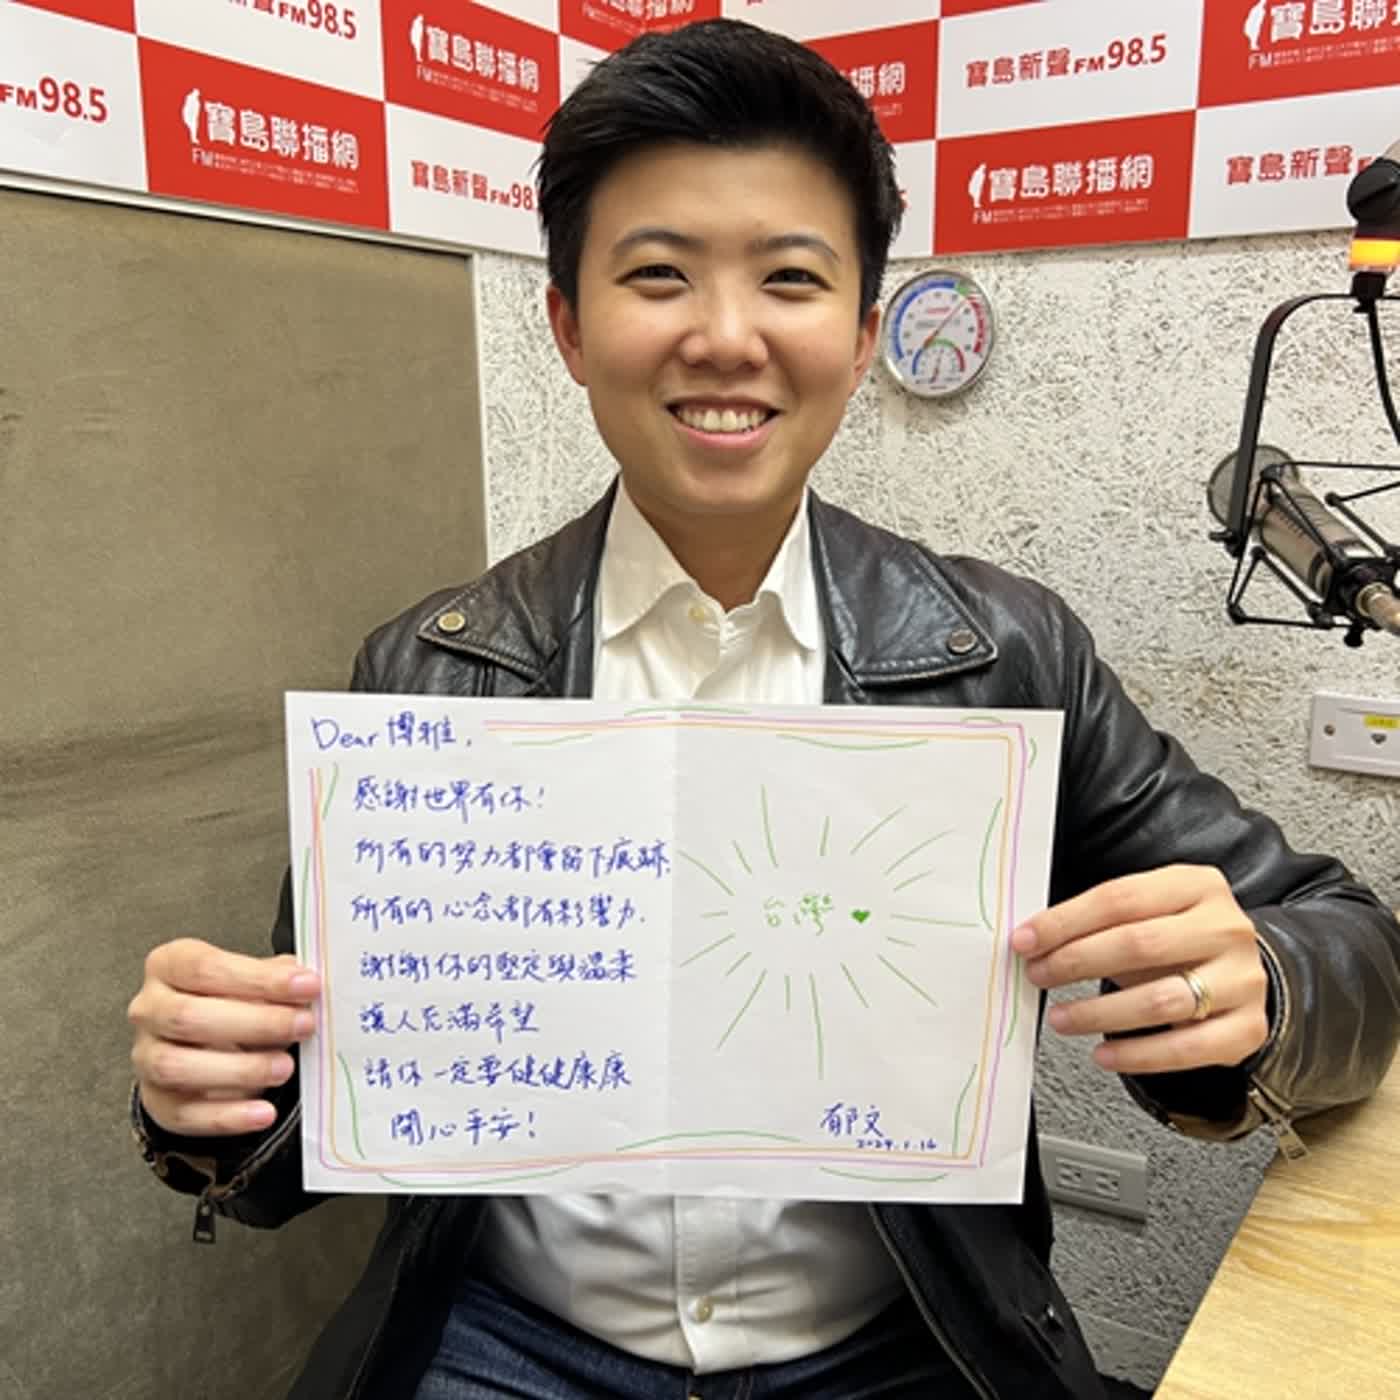 寶島新聲FM98.5
寶島聯播網
FM
寶島新聲FM98.5
FM98.5
寶島聯播網
FM
寶島新聲FM98.
寶島聯播網
FM
寶島聯播網
FM
寶島新聲
Dear 博雅,
感謝世界有你!
所有的努力都會留下痕跡,
所有的心念都有影響力.
謝謝你的堅定與溫柔
讓人充滿希望
請你一定要健健康康
開心平安!
台灣
郁文
2024.1.16